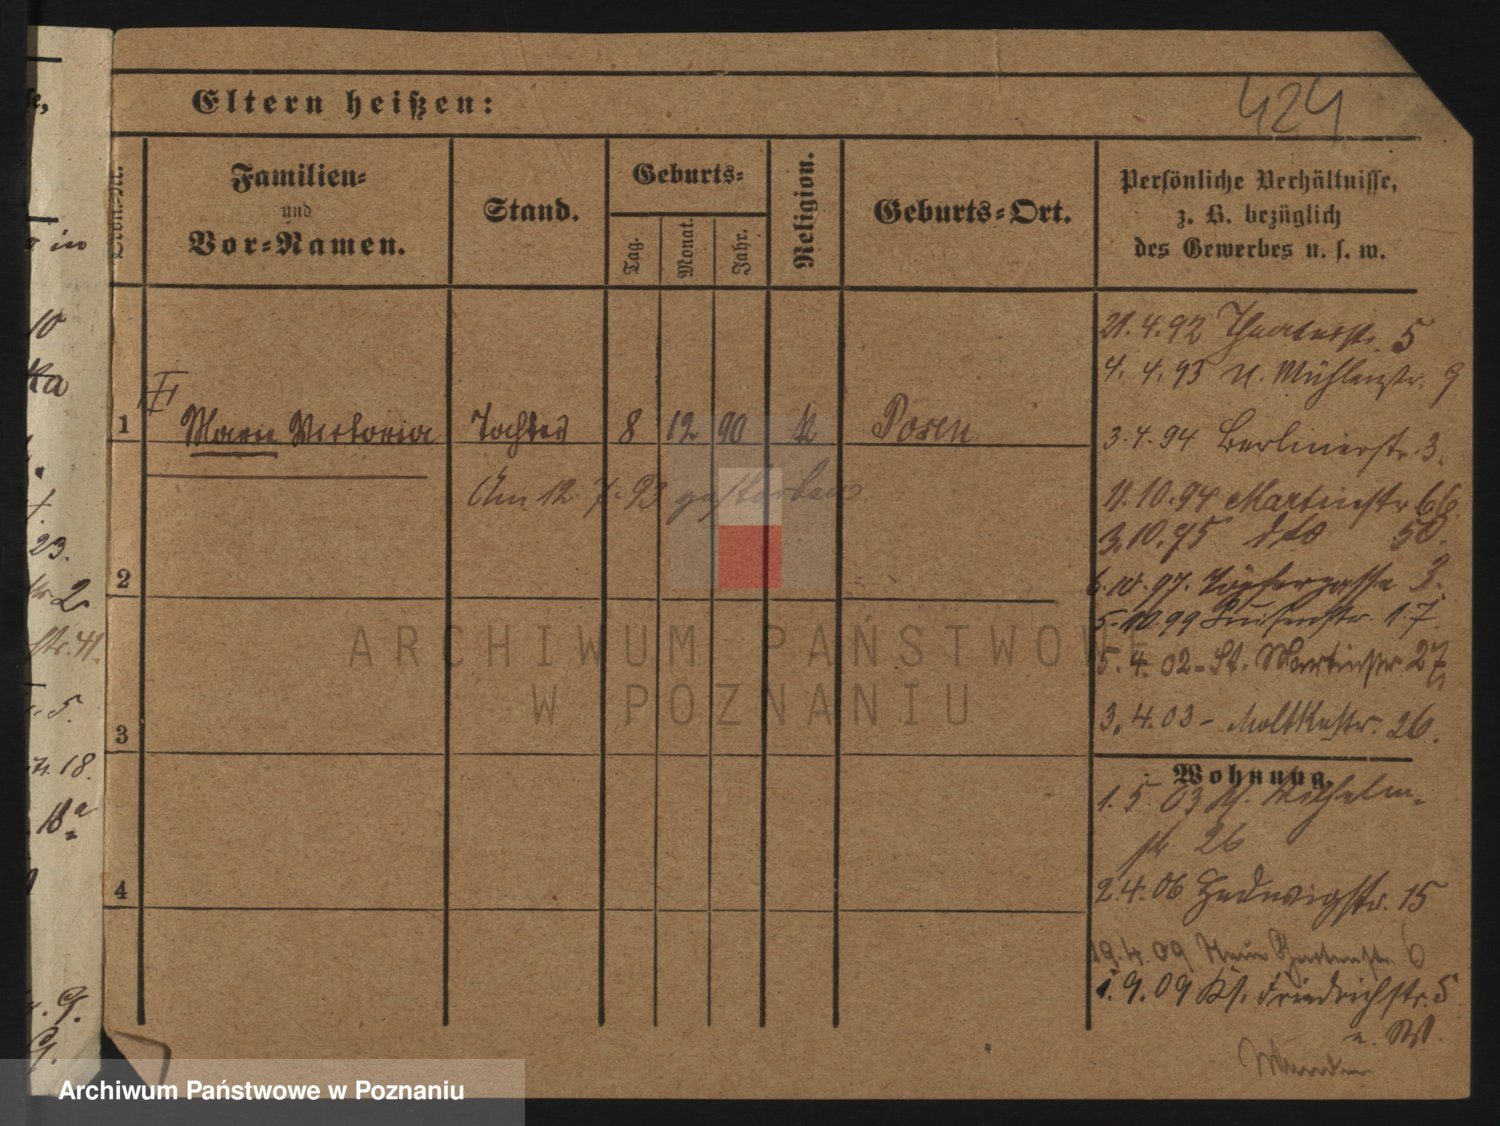 424
Eltern heißen:
Familien-
und
Vor-Namen.
Stand.
Geburts-
Tag.
Monat.
Jahr.
Religion.
Geburts-Ort.
Persönliche Verhältnisse,
z. B. bezüglich
des Gewerbes u. s. w.
II
1 Marie Victoria Tochter 8 12 90 K Posen
Am 12. 7. 93 gestorben
2
3
4
21. 4. 92 Theaterstr. 5
4. 4. 93 U. Mühlenstr. 9
3. 4. 94 Berlinerstr. 3.
11. 10. 94 Martinstr 66
3. 10. 95 dto 50.
6. 10. 97. Töpfergasse 3.
5. 10. 99 Luisenstr. 17
5. 4. 02 - St. Martinstr 27
3. 4. 03 - Moltkestr. 26.
Wohnung.
1. 5. 03 Wilhelm-
str 26
2. 4. 06 Hedwigstr. 15
19. 4. 09 Neue Gartenstr. 6
1. 9. 09 Friedrichstr. 5
in
10
ka
23.
2
str. 41.
5.
18.
18a
G.
G.
ARCHIWUM PAŃSTWOWE
W POZNANIU
Archiwum Państwowe w Poznaniu